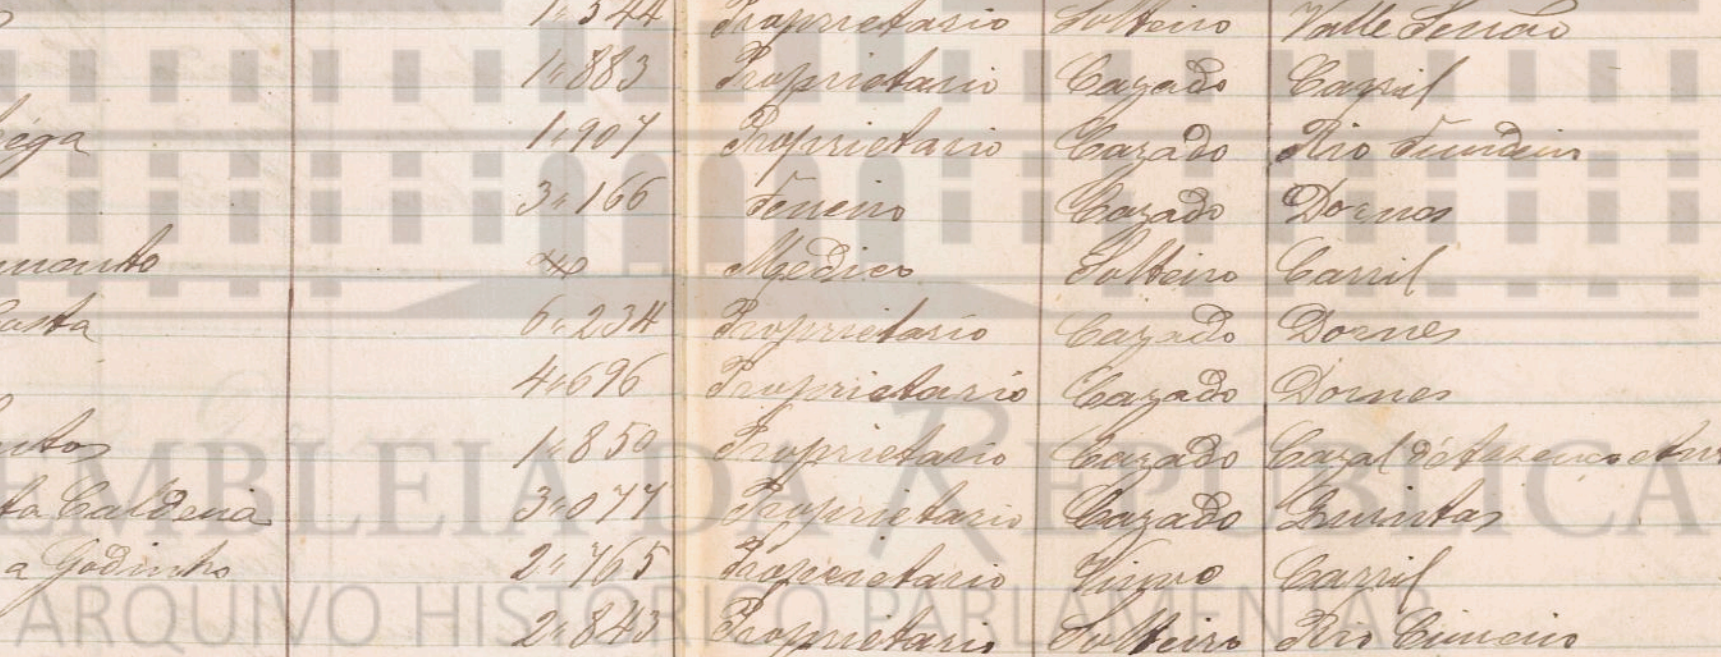 1"544 Proprietario Solteiro Valle Serrão
1"883 Proprietario Cazado Carril
1"907 Proprietario Cazado Rio Fundeiro
3"166 Ferreiro Cazado Dornes
Medico Solteiro Carril
6"234 Proprietario Cazado Dornes
4"696 Proprietario Cazado Dornes
1"850 Proprietario Cazado Cazal
ta Caldeira 3"077 Proprietario Cazado Quintas
a Godinho 2"765 Proprietario Viuvo Carril
2"843 Proprietario Solteiro Rio Cimeiro
EMBLEIA DA REPÚBLICA
ARQUIVO HISTÓRICO PARLAMENTAR